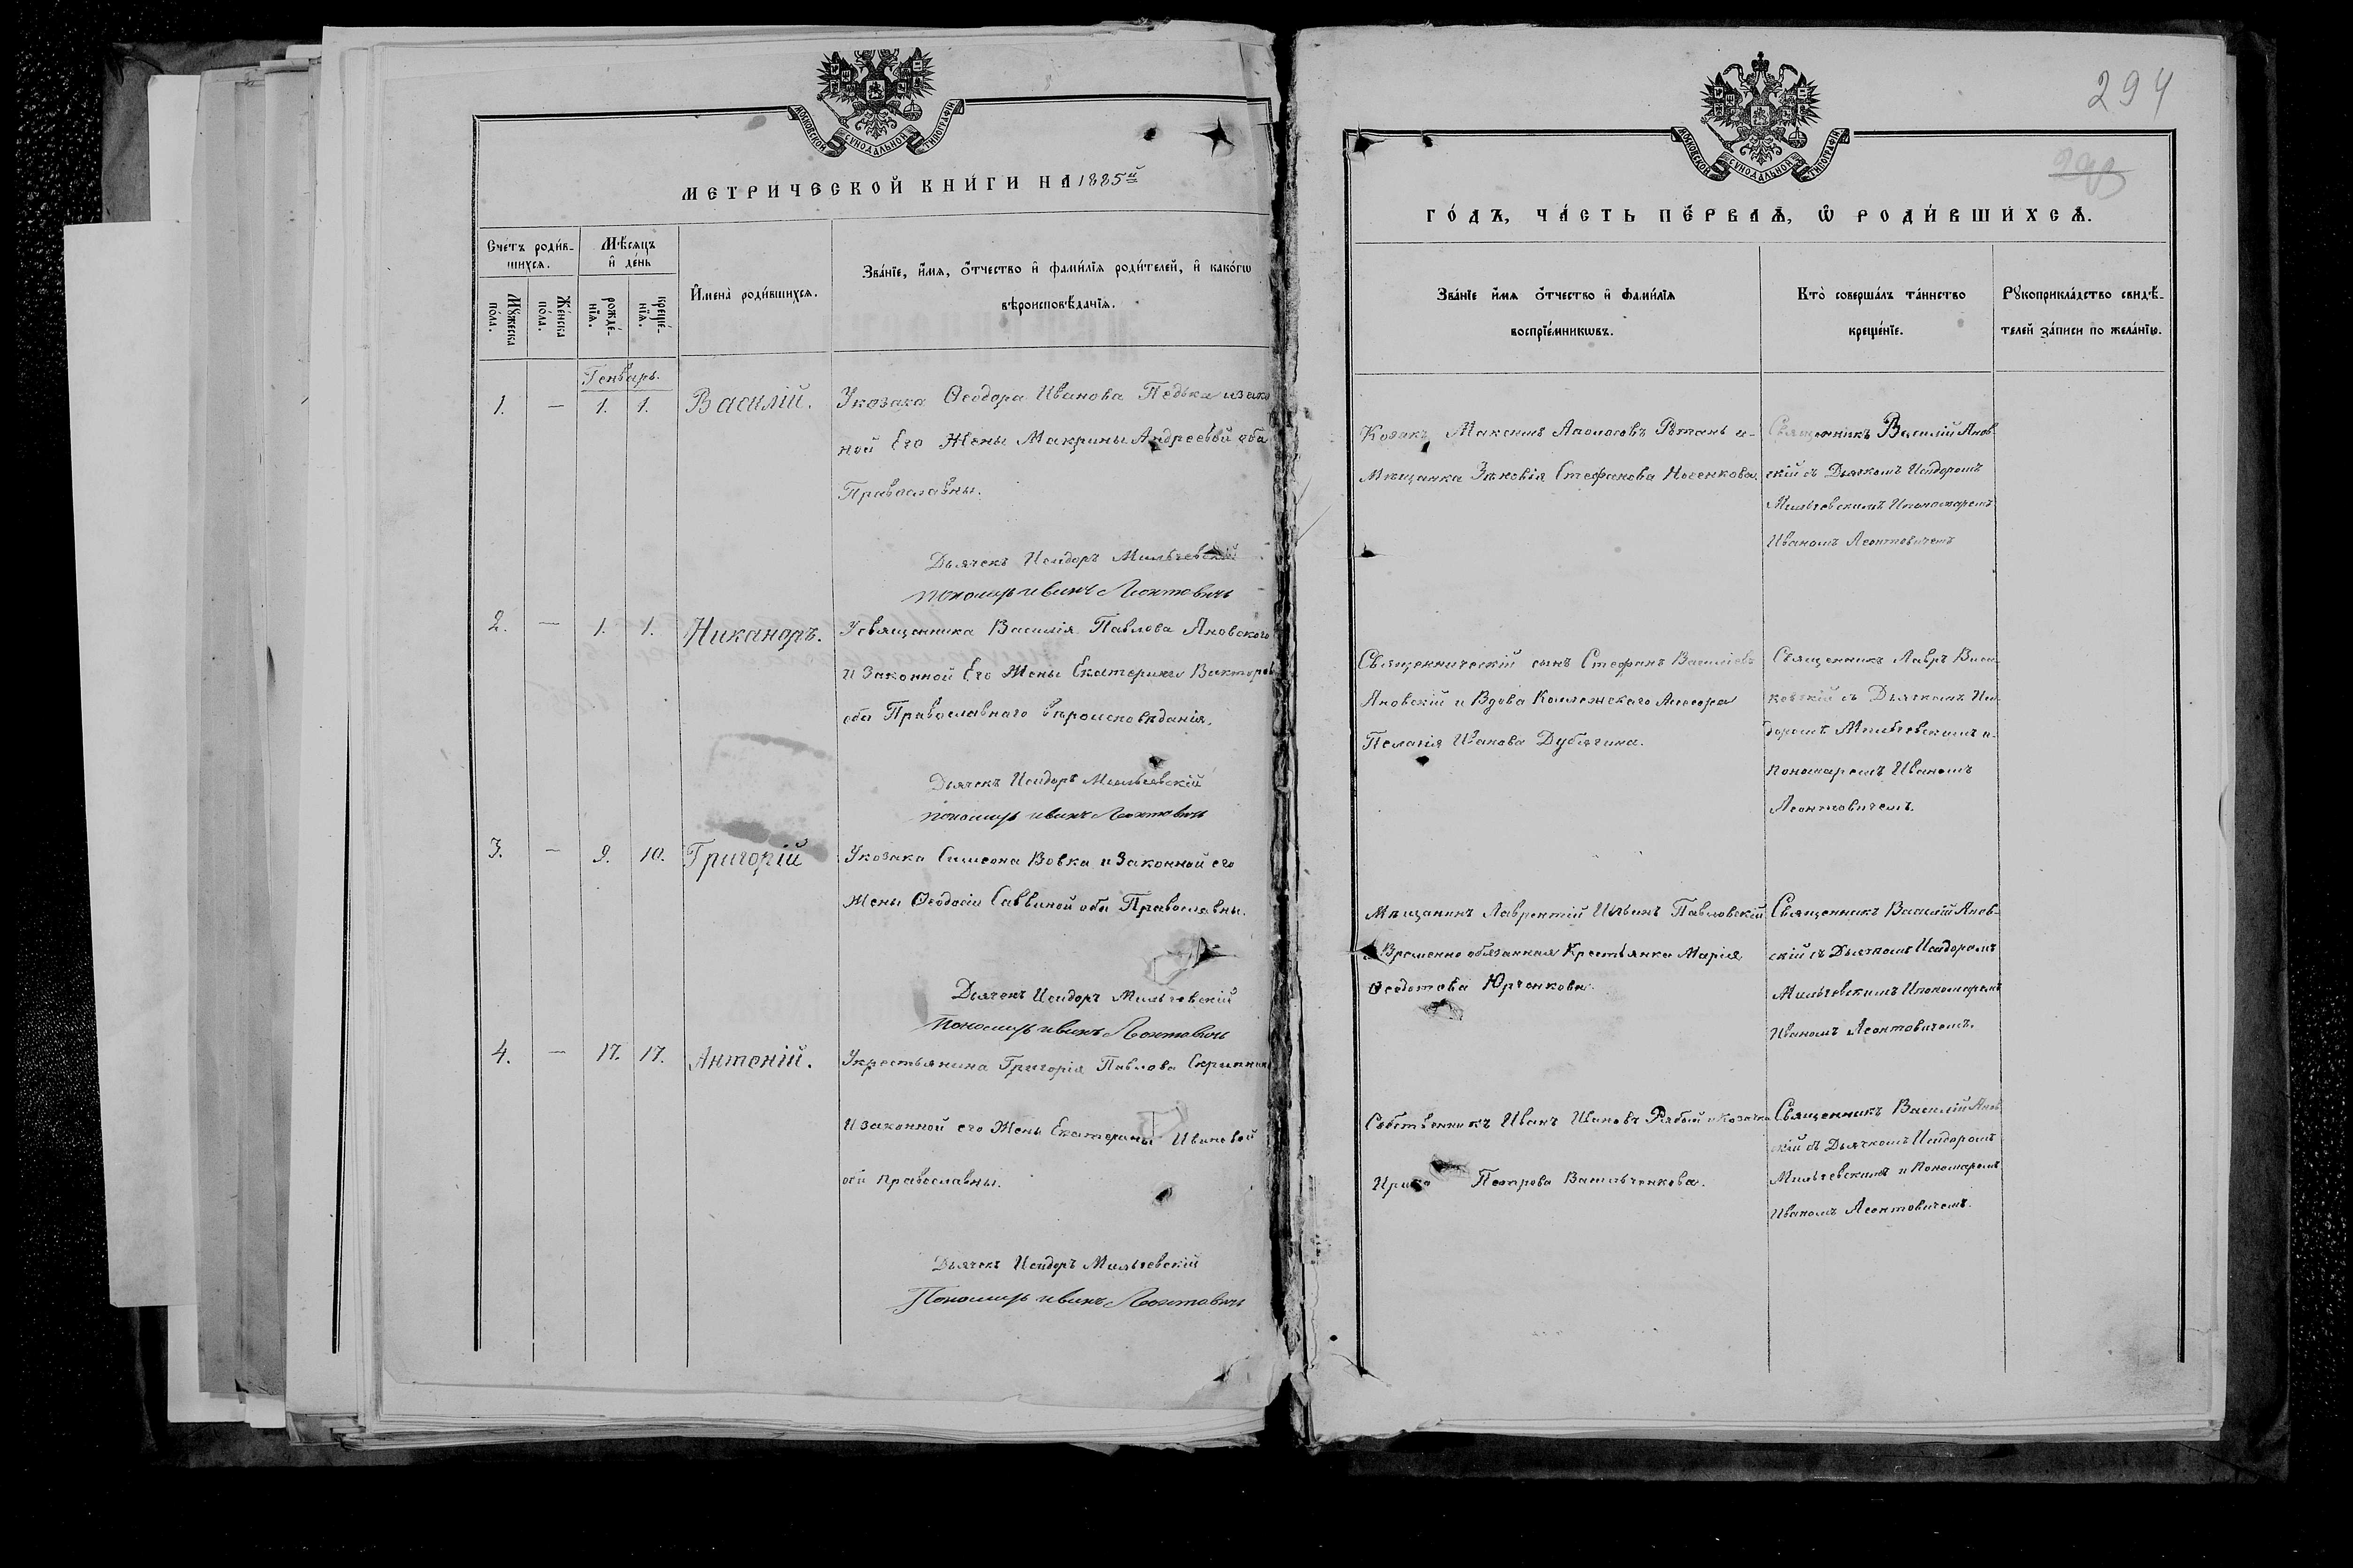 МОСКОВСКОЙ СѴНОДАЛЬНОЙ ТИПОГРАФІИ
МЕТРИЧЕСКОЙ КНИГИ НА 1885й
Счетъ родив-
шихся.
Мѣсяцъ
и день
Мужеска
пола.
Женска
пола.
рожде-
нія.
креще-
нія.
Имена родившихся.
Званіе, имя, отчество и фамилія родителей, и какогѡ
вѣроисповѣданія.
Генварь.
1. — 1. 1. Василій. У козака Ѳеодора Иванова Педька и зако
ной Его Жены Макрины Андреевой оба
Православны.
Дьячекъ Исидоръ Мильчевскій
Пономарь Иванъ Леонтовичъ
2. — 1. 1. Никаноръ. У священника Василія Павлова Яновского
и Законной Его Жены Екатерины Викторов
оба Православнаго вѣроисповѣданія.
Дьячекъ Исидоръ Мильчевскій
Пономарь Иванъ Леонтовичъ
3. — 9. 10. Григорій У козака Симеона Вовка и Законной его
Жены Ѳеодосіи Саввиной оба Православны.
Дьячекъ Исидоръ Мильчевскій
Пономарь Иванъ Леонтовичъ
4. — 17. 17. Антоній. У крестьянина Григорія Павлова
И законной его Жены Екатерины Ивановой
оба православны.
Дьячекъ Исидоръ Мильчевскій
Пономарь Иванъ Леонтовичъ
294
МОСКОВСКОЙ СѴНОДАЛЬНОЙ ТИПОГРАФІИ
ГОДЪ, ЧАСТЬ ПЕРВАЯ, Ѡ РОДИВШИХСЯ.
Званіе имя отчество и фамилія
воспріемникѡвъ.
Кто совершалъ таинство
крещеніе.
Рукоприкладство свидѣ-
телей записи по желанію.
Козакъ Максимъ и-
Мѣщанка Зѣновія Стефанова Носенкова.
Священникъ Василій Янов-
скій съ Дьячкомъ Исидоромъ
Мильчевскимъ И пономаремъ
Иваномъ Леонтовичемъ
Священническій сынъ Стефанъ Василіевъ
Яновскій и Вдова Колежскаго Асесора
Пелагія Иванова Дублгина.
Священникъ Лавръ
ковскій съ Дьячкомъ Иси-
доромъ Мильчевскимъ и-
пономаремъ Иваномъ
Леонтовичемъ.
Мѣщанинъ Лаврентій Ильинъ Павловскій
Временно обязанная Крестьянка Марія
Ѳедотова Юрченкова.
Священникъ Василій Янов-
скій съ Дьячкомъ Исидоромъ
Мильчевскимъ И пономаремъ
Иваномъ Леонтовичемъ.
Собственникъ Иванъ Ивановъ Рябой и козачка
Ирина Петрова Васильченкова.
Священникъ Василій Янов
скій съ Дьячкомъ Исидоромъ
Мильчевскимъ и Пономаремъ
Иваномъ Леонтовичемъ.